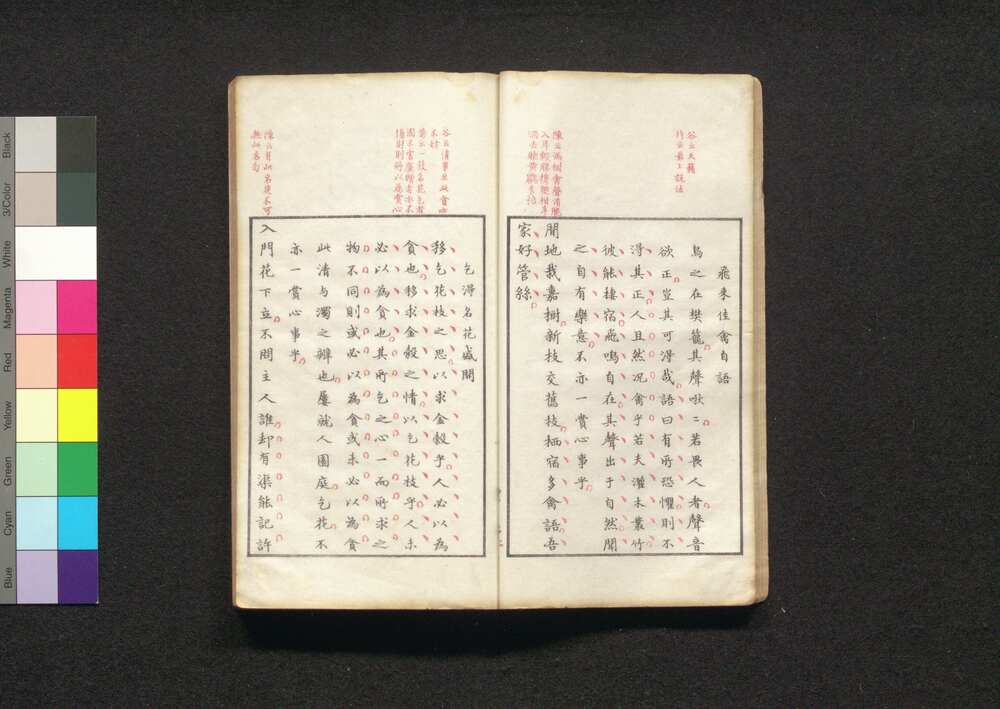 飛來佳禽自語
鳥之在樊籠其聲啾〻若畏人者聲音
欲正豈其可得哉語曰有所恐懼則不
得其正人且然况禽乎若夫灌木叢竹
彼能棲宿飛鳴自在其聲出于自然聞
之自有樂意不亦一賞心事乎
閒地栽嘉樹新枝交舊枝栖宿多禽語吾
家好管絲
乞得名花盛開
移乞花枝之思以求金穀乎人必以為
貪也移求金穀之情以乞花枝乎人未
必以為貪也其所乞之心一而所求之
物不同則或必以為貪或未必以為貪
此清与濁之辨也屢就人園庭乞花不
亦一賞心事乎
入門花下立不問主人誰却有渠能記許
谷云天籟
陳云滿樹禽聲
Black
3/Color
White
Magenta
Red
Yellow
Green
Cyan
Blue